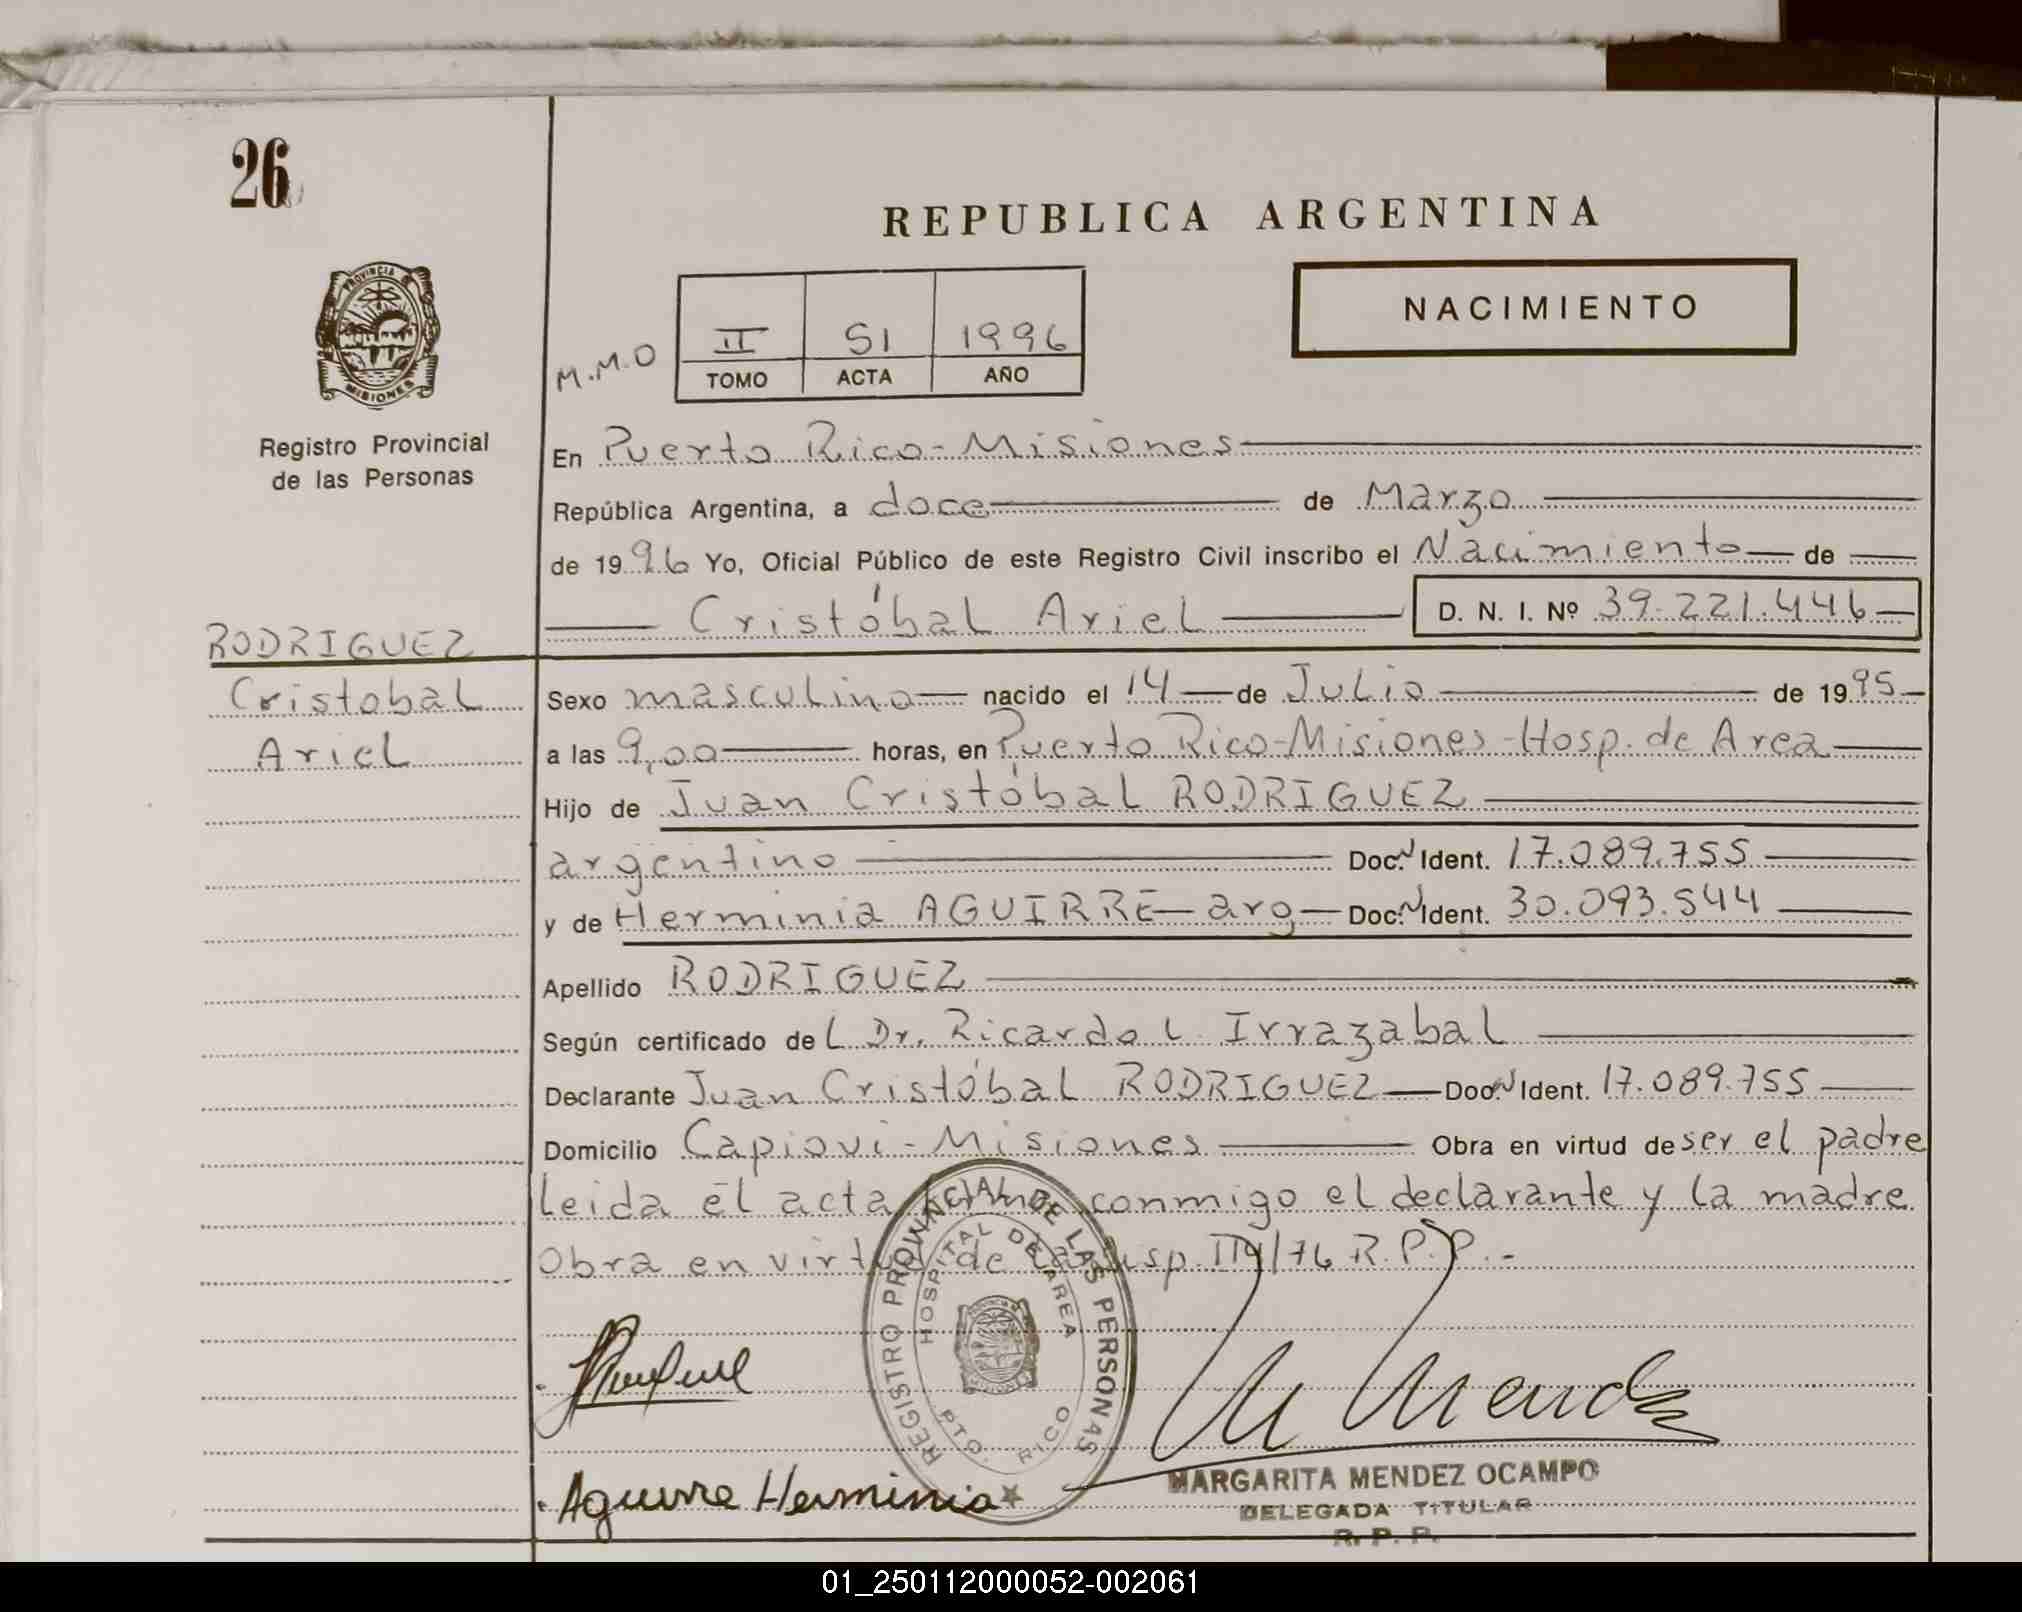 26
REPUBLICA ARGENTINA
NACIMIENTO
PROVINCIA DE MISIONES
Registro Provincial
de las Personas
M.M.O
II 51 1996
TOMO ACTA AÑO
En Puerto Rico-Misiones
República Argentina, a doce de Marzo
de 1996 Yo, Oficial Público de este Registro Civil inscribo el Nacimiento de
Cristóbal Ariel D. N. I. Nº 39.221.446
RODRIGUEZ
Cristobal
Ariel
Sexo masculino nacido el 14 de Julio de 1995
a las 9,00 horas, en Puerto Rico-Misiones-Hosp. de Area
Hijo de Juan Cristóbal RODRIGUEZ
argentino Doc. Ident. 17.089.755
y de Herminia AGUIRRE - arg Doc. Ident. 30.093.544
Apellido RODRIGUEZ
Según certificado del Dr. Ricardo L. Irrazabal
Declarante Juan Cristóbal RODRIGUEZ Doc. Ident. 17.089.755
Domicilio Capiovi-Misiones Obra en virtud de ser el padre
Leida el acta conmigo el declarante y la madre
Obra en virtud de La Disp. 114/76 R.P.P.-
REGISTRO PROVINCIAL DE LAS PERSONAS
HOSPITAL DE AREA
PTO. RICO
M Mendez
Aguirre Herminia
MARGARITA MENDEZ OCAMPO
DELEGADA TITULAR
R. P. P.
01_250112000052-002061